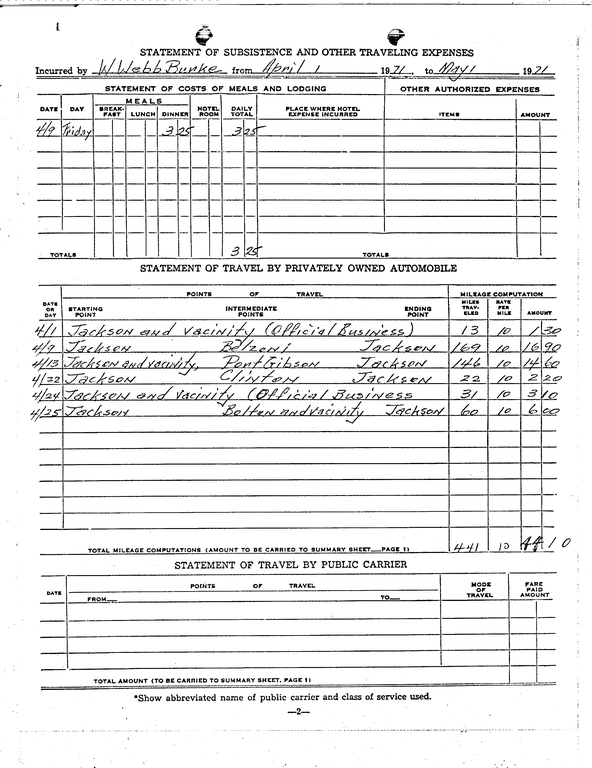 STATEMENT OF SUBSISTENCE AND OTHER TRAVELING EXPENSES
Incurred by W Webb Burke from April 1 1971 to May 1 1971
STATEMENT OF COSTS OF MEALS AND LODGING OTHER AUTHORIZED EXPENSES
DATE DAY MEALS BREAK-FAST LUNCH DINNER HOTEL ROOM DAILY TOTAL PLACE WHERE HOTEL EXPENSE INCURRED ITEMS AMOUNT
4/9 Friday 3 25 3 25
TOTALS 3 25 TOTALS
STATEMENT OF TRAVEL BY PRIVATELY OWNED AUTOMOBILE
POINTS OF TRAVEL MILEAGE COMPUTATION
DATE OR DAY STARTING POINT INTERMEDIATE POINTS ENDING POINT MILES TRAV-ELED RATE PER MILE AMOUNT
4/1 Jackson and vacinity (Official Business) 13 10 1 30
4/9 Jackson Belzoni Jackson 169 10 16 90
4/13 Jackson and vacinity, Port Gibson Jackson 146 10 14 60
4/22 Jackson Clinton Jackson 22 10 2 20
4/24 Jackson and vacinity (Official Business 31 10 3 10
4/25 Jackson Bolton and vacinity Jackson 60 10 6 00
TOTAL MILEAGE COMPUTATIONS (AMOUNT TO BE CARRIED TO SUMMARY SHEET—PAGE 1) 441 10 44 10
STATEMENT OF TRAVEL BY PUBLIC CARRIER
DATE POINTS OF TRAVEL MODE OF TRAVEL FARE PAID AMOUNT
FROM— TO—
TOTAL AMOUNT (TO BE CARRIED TO SUMMARY SHEET, PAGE 1)
*Show abbreviated name of public carrier and class of service used.
—2—